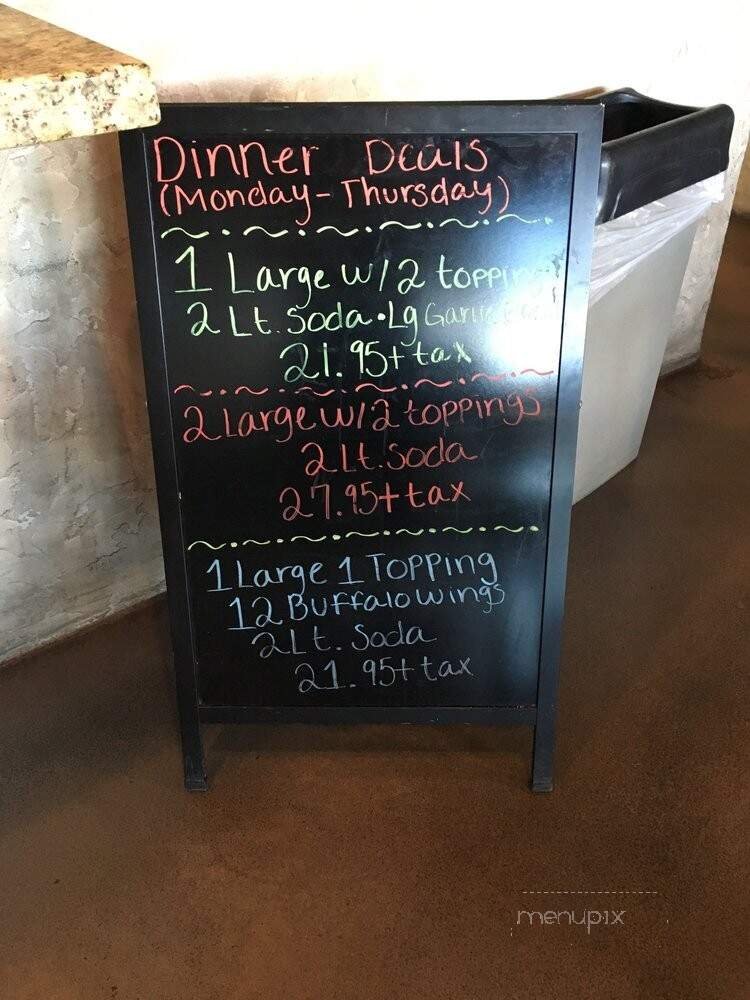 Dinner Deals
(Monday - Thursday)
1 Large w/ 2 topping
2 Lt. Soda • Lg Garlic
21.95 + tax
2 Large w/ 2 toppings
2 Lt. Soda
27.95 + tax
1 Large 1 Topping
12 Buffalo wings
2 Lt. Soda
21.95 + tax
menupix